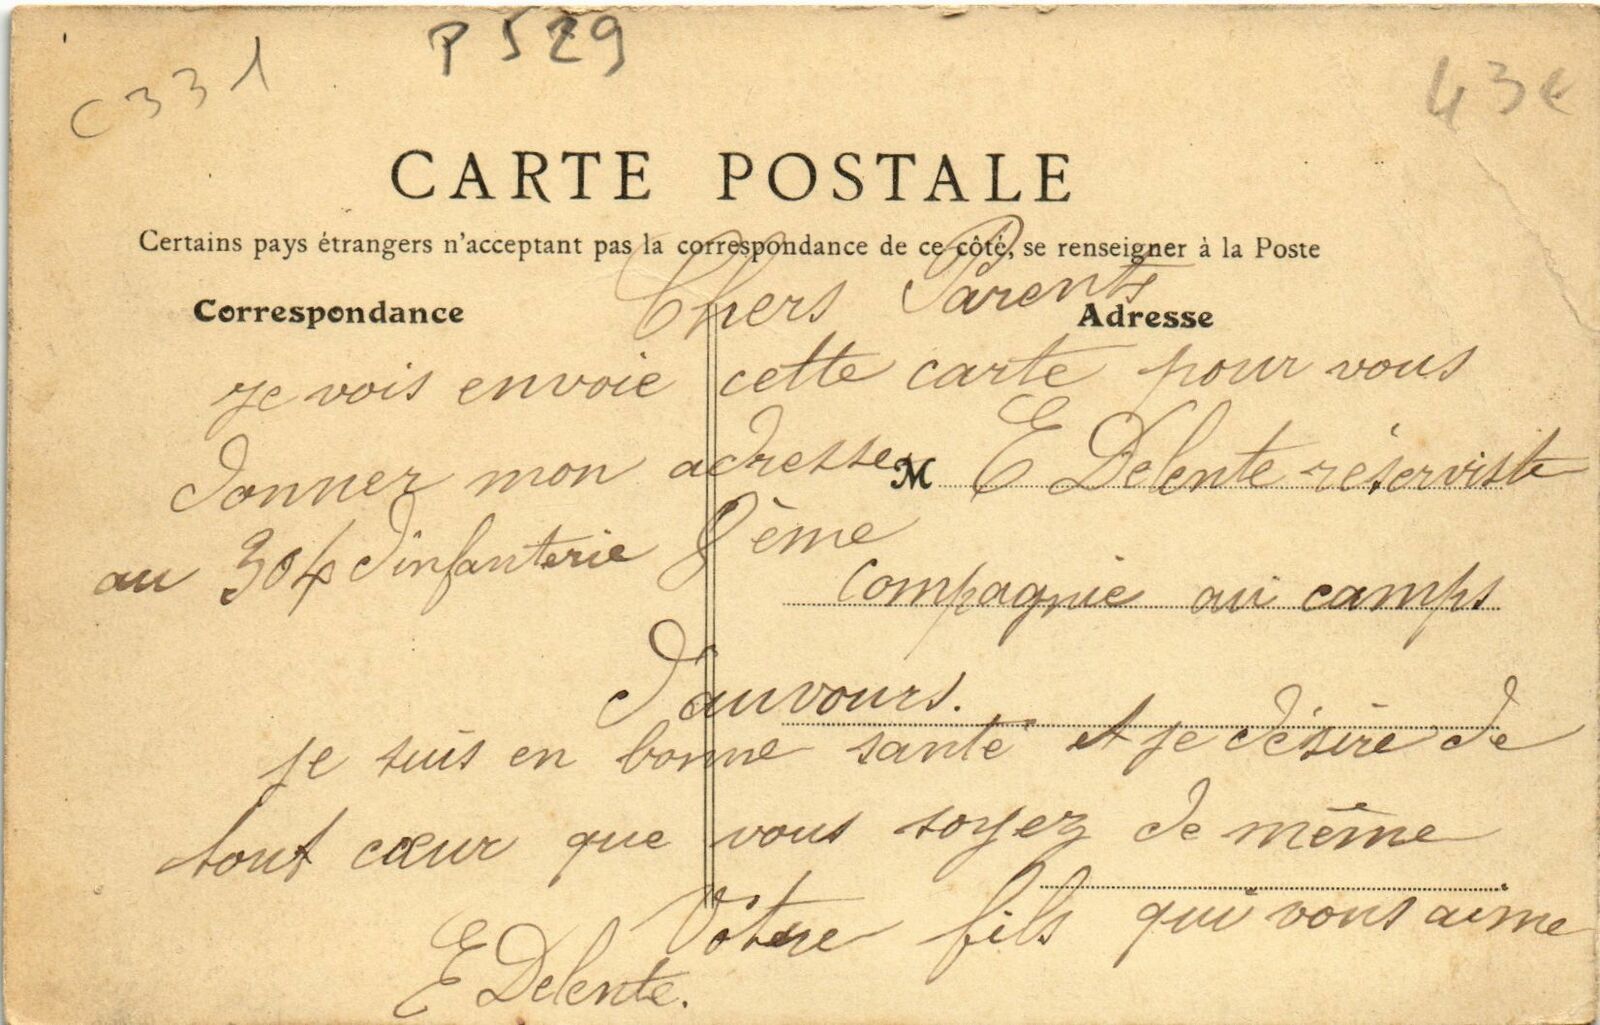 C331
P 529
43€
CARTE POSTALE
Certains pays étrangers n'acceptant pas la correspondance de ce côté, se renseigner à la Poste
Correspondance
Adresse
Chers Parents
je vois envoie cette carte pour vous
donner mon adresse M E Delente réserviste
au 304 d'infanterie 8ème
compagnie au camps
d'auvours.
je suis en bonne santé et je désire de
tout cœur que vous soyez de même
Vôtre fils qui vous aime
E Delente.